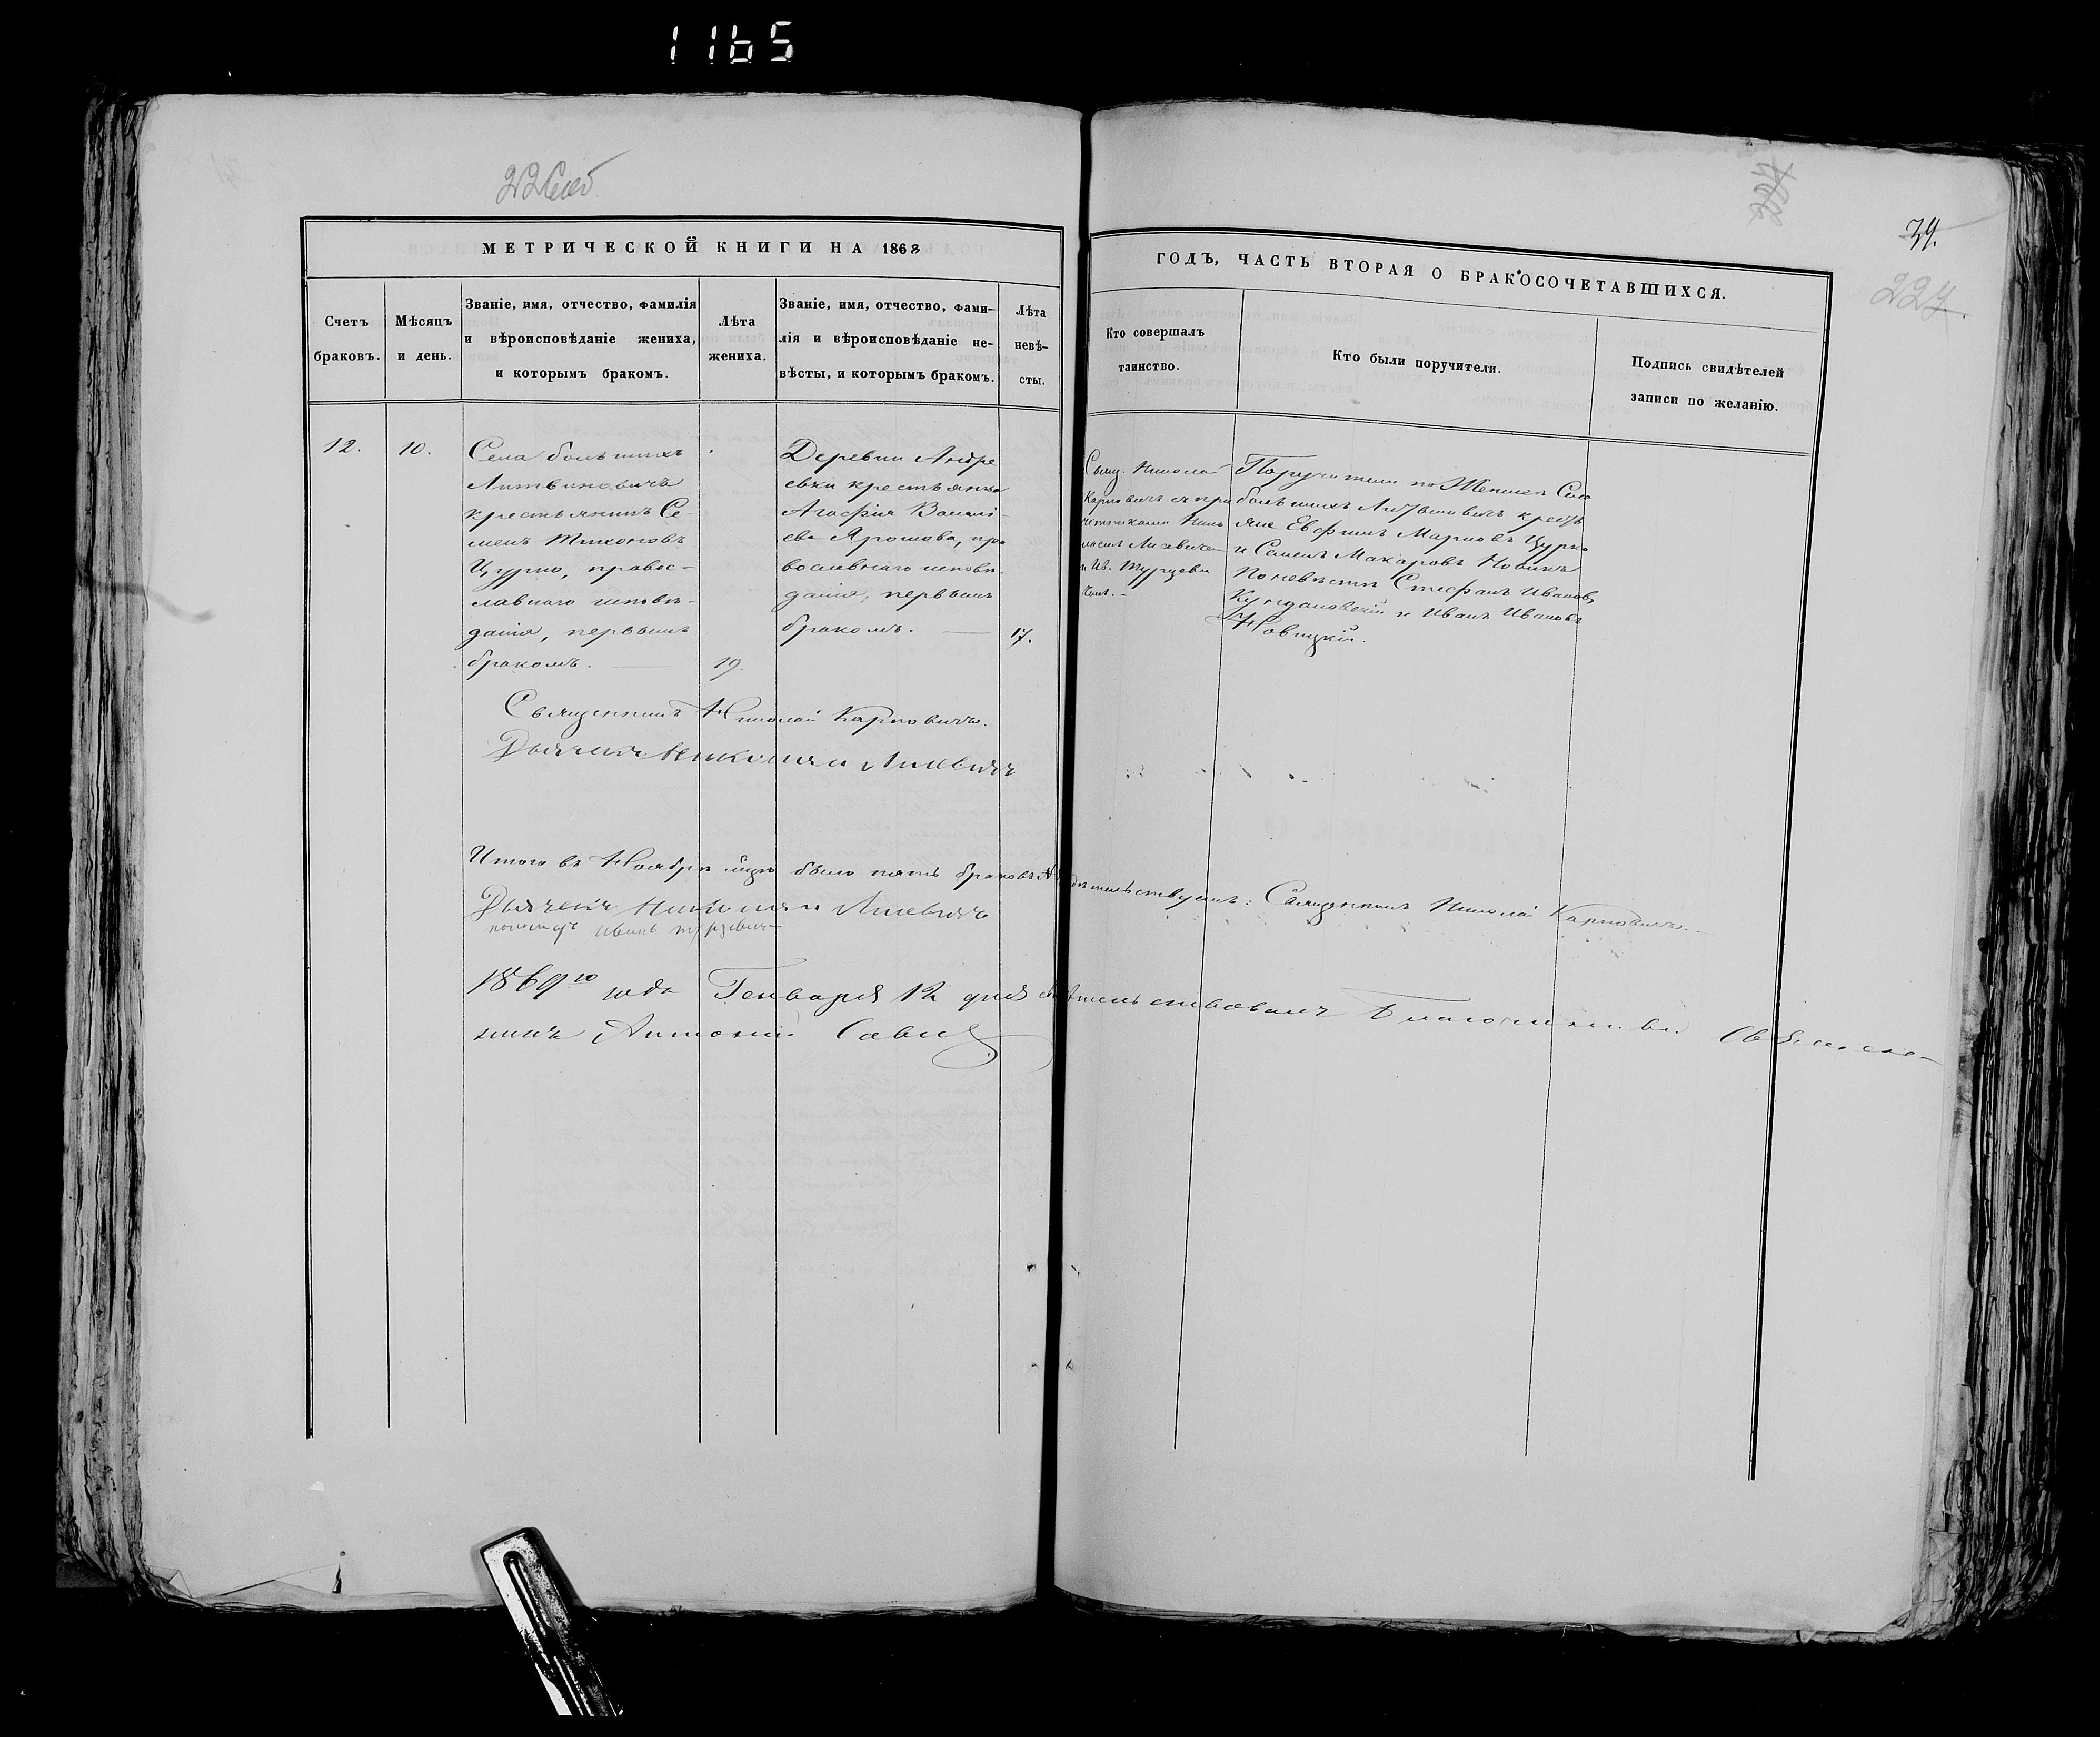 1165
22
39.
227.
МЕТРИЧЕСКОЙ КНИГИ НА 1868
ГОДЪ, ЧАСТЬ ВТОРАЯ О БРАКОСОЧЕТАВШИХСЯ.
Счетъ браковъ.
Мѣсяцъ и день.
Званіе, имя, отчество, фамилія
и вѣроисповѣданіе жениха,
и которымъ бракомъ.
Лѣта
жениха.
Званіе, имя, отчество, фами-
лія и вѣроисповѣданіе не-
вѣсты, и которымъ бракомъ.
Лѣта
невѣ-
сты.
Кто совершалъ
таинство.
Кто были поручители.
Подпись свидѣтелей
записи по желанію.
12.
10.
Села большихъ
Литвиновичъ
крестьянинъ Се-
менъ Тихоновъ
Цурко, правос-
лавнаго исповѣ-
данія, первымъ
бракомъ.
19
Деревни Андре
евки крестьянка
Агафія Василі-
ева Ярошова, пра
вославнаго исповѣ-
данія, первымъ
бракомъ.
17.
Свящ. Николай
Карповичъ с при
четниками Нико
лаемъ
и Ив.
Поручители по Женихѣ Села
большихъ Литвиновичъ кресть
яне Евфимъ Марковъ Цурко
и Семенъ Макаровъ Новикъ
По невѣстѣ Стефанъ Ивановъ
и Иванъ Ивановъ
Новицкій.
Священникъ Николай Карповичъ.
Дьячекъ Николай
Итого въ Ноябрѣ мцѣ было пять браковъ
дѣтельствуемъ: Священникъ Николай Карповичъ.
Дьячекъ Николай
Иванъ
1869го года Генваря 12 дня свидѣтельствовалъ Благочинный Священ-
никъ Антоній Савич